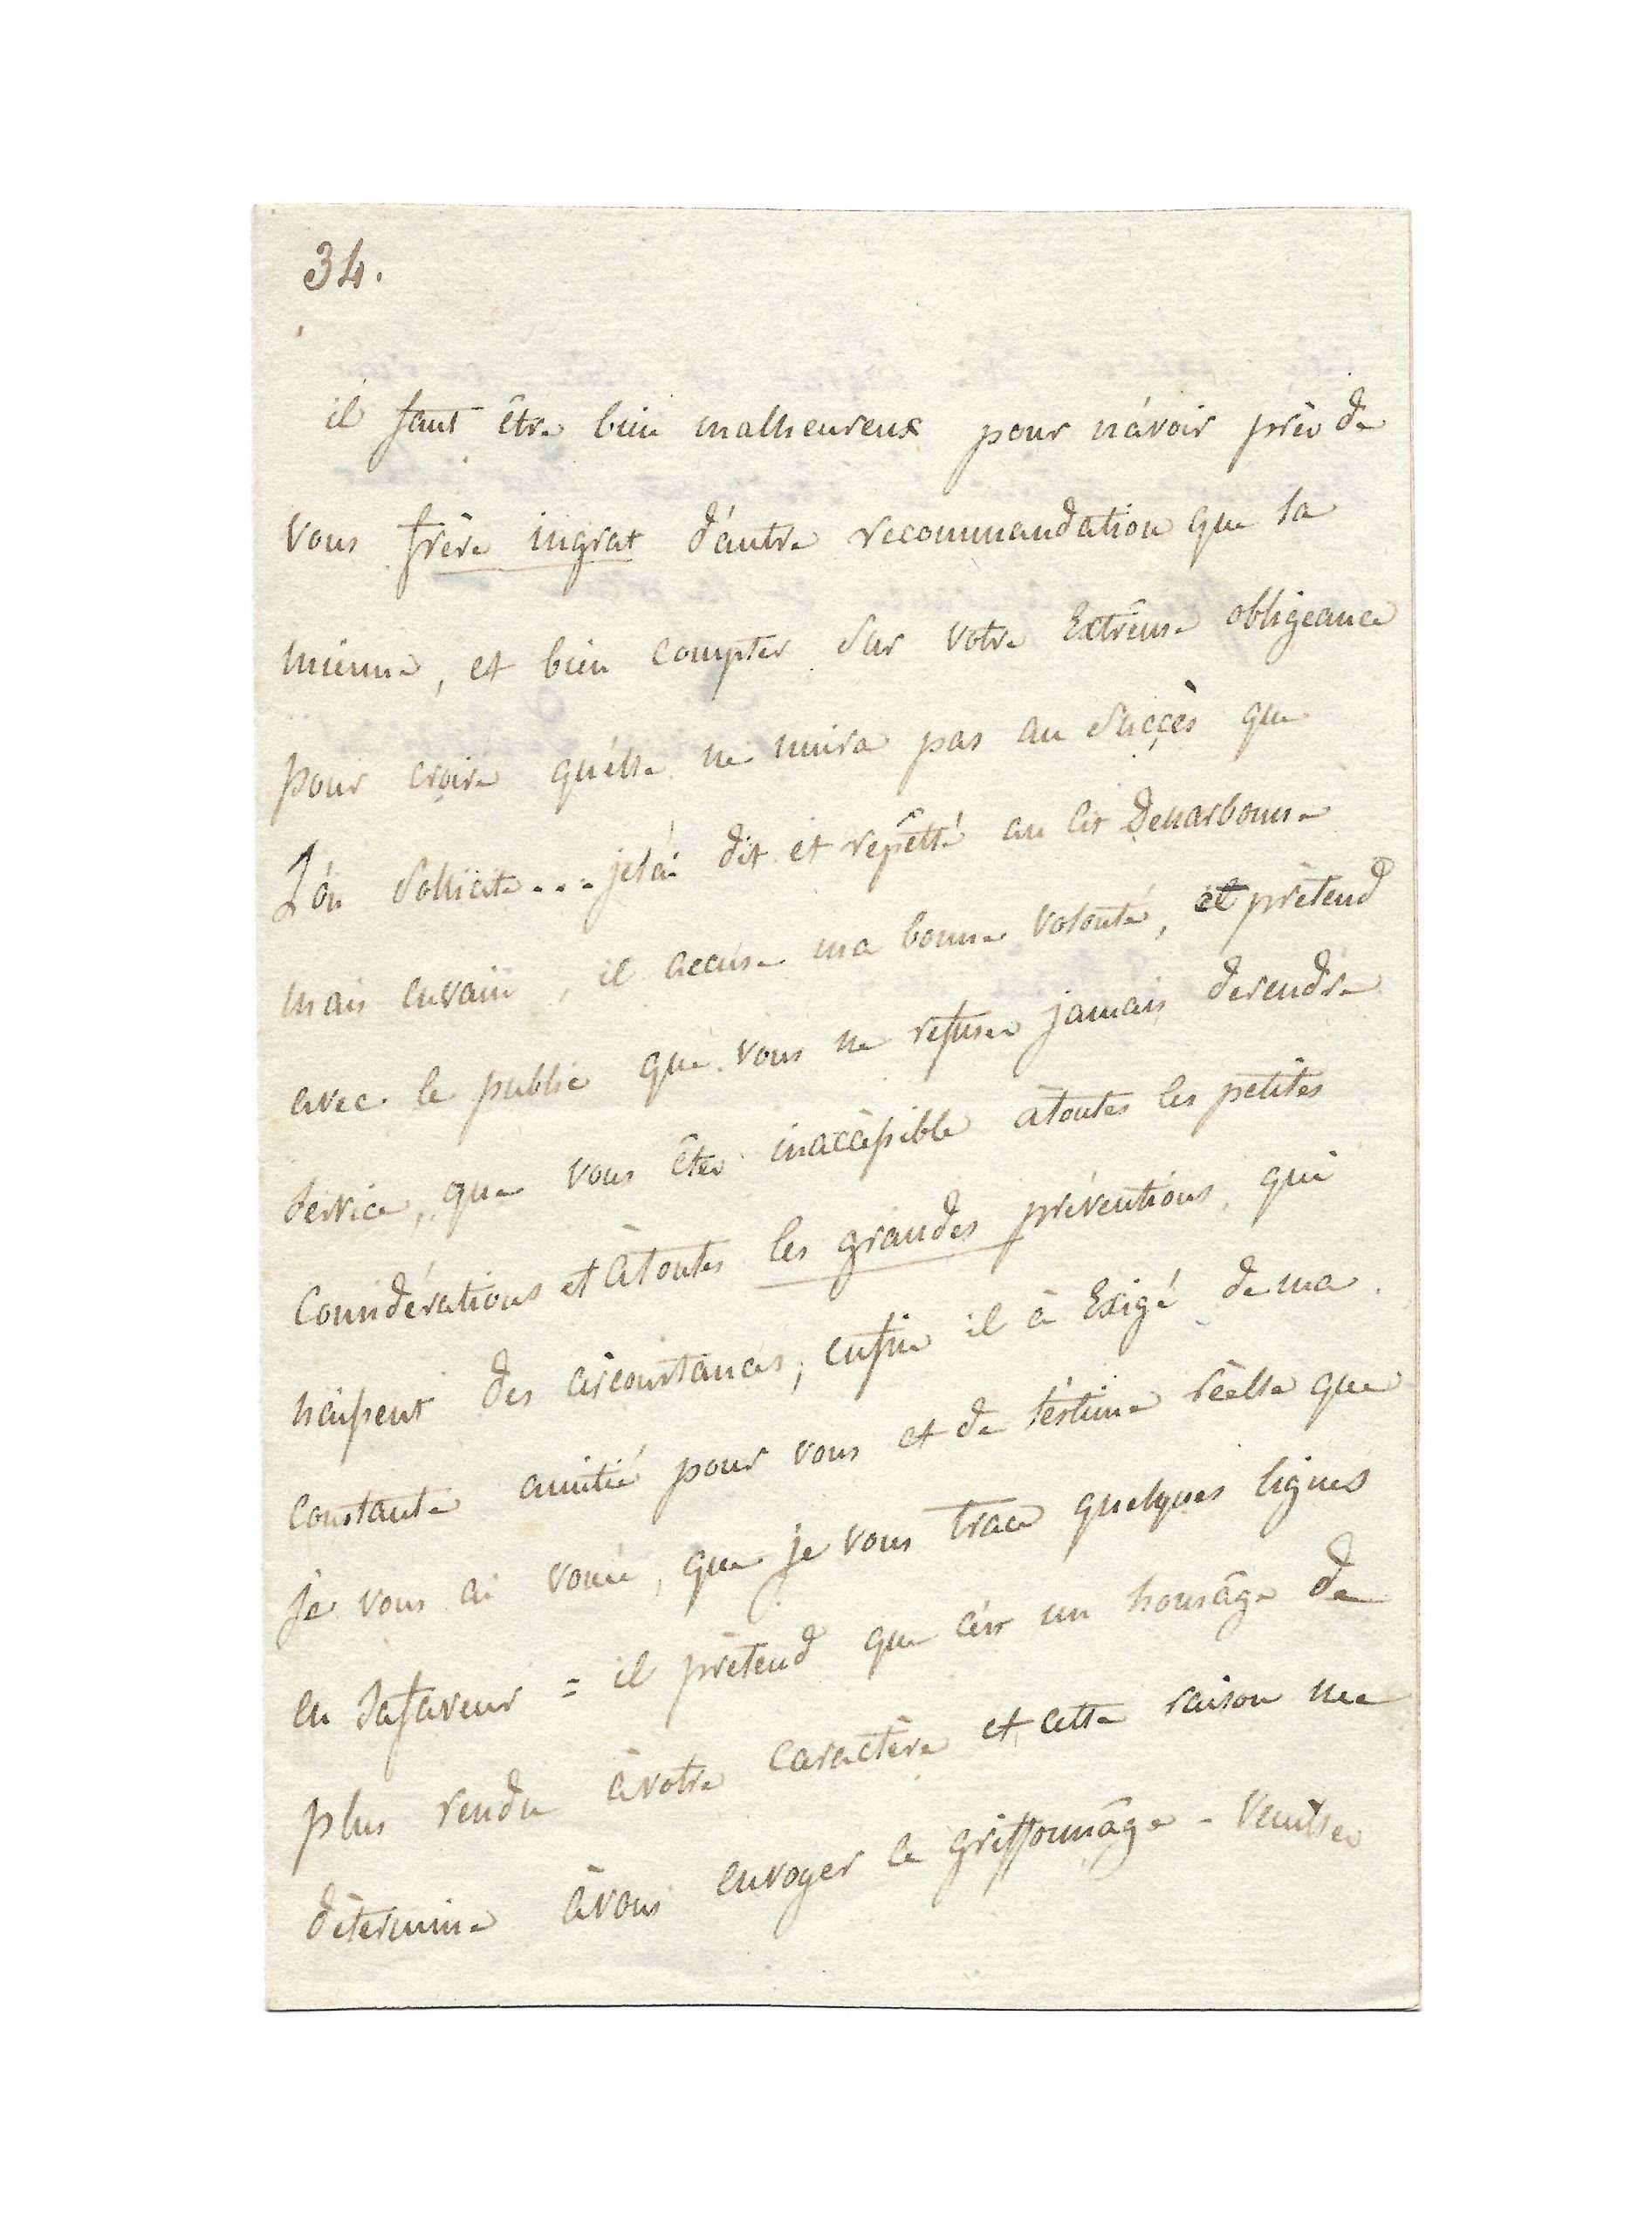 34.
il faut être bien malheureux pour n'avoir près de
vous frère ingrat d'autre recommandation que la
mienne, et bien compter sur votre Extrême obligeance
pour croire qu'elle ne nuira pas au succès que
L'on sollicite... je l'ai dit et répetté au cit Denarbonne
mais envain, il accuse ma bonne volonté, et prétend
avec le public que vous ne refusez jamais derendre
service, que vous êtes inaccessible àtoutes les petites
Considérations et àtoutes les grandes préventions, qui
naissent des circonstances; enfin il à Exigé de ma
constante amitié pour vous et de l'estime réelle que
je vous ai vouée, que je vous trace quelques lignes
en safaveur = il prétend que c'est un homâge de
plus rendu àvotre caractère et cette raison me
détermine àvous envoyer ce griffonnâge - Veuillez